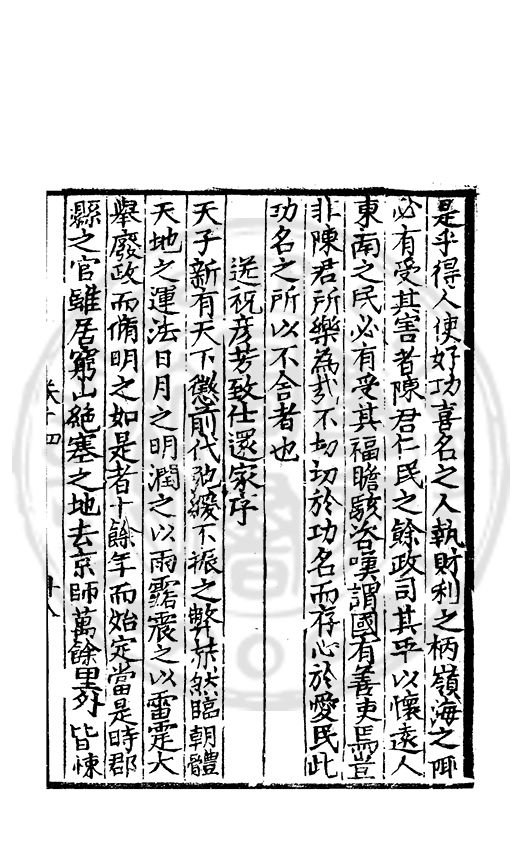 是乎得人使好功喜名之人執財利之柄嶺海之陬
必有受其害者陳君仁民之餘政司其平以懷遠人
東南之民必有受其福瞻駭咨嘆謂國有善吏焉豈
非陳君所樂為哉不切切於功名而存心於愛民此
功名之所以不舍者也
送祝彥芳致仕還家序
天子新有天下懲前代弛緩不振之弊赫然臨朝體
天地之運法日月之明潤之以雨露震之以雷霆大
舉廢政而脩明之如是者十餘年而始定當是時郡
縣之官雖居窮山絕塞之地去京師萬餘里外皆悚
卷十四